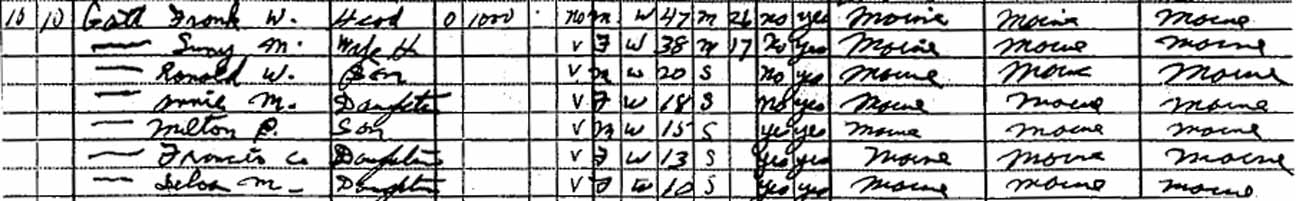 10 10 Gatt Frank W. Head 0 1000 no M W 47 M 26 no yes Maine Maine Maine
— M. Wife H V F W 38 M 17 no yes Maine Maine Maine
— Ronald W. Son V M W 20 S no yes Maine Maine Maine
— Annie M. Daughter V F W 18 S no yes Maine Maine Maine
— Milton P. Son V M W 15 S yes yes Maine Maine Maine
— Francis C Daughter V F W 13 S yes yes Maine Maine Maine
— M. Daughter V F W 10 S yes yes Maine Maine Maine